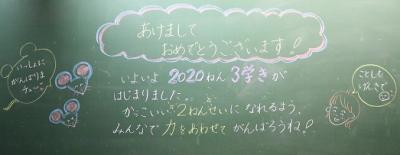 あけまして
おめでとうございます!
いよいよ 2020ねん 3学きが
はじまりました。
かっこいい 2ねんせいに なれるよう、
みんなで 力をあわせて がんばろうね!
いっしょに
がんばりま
チュー。
ことしも